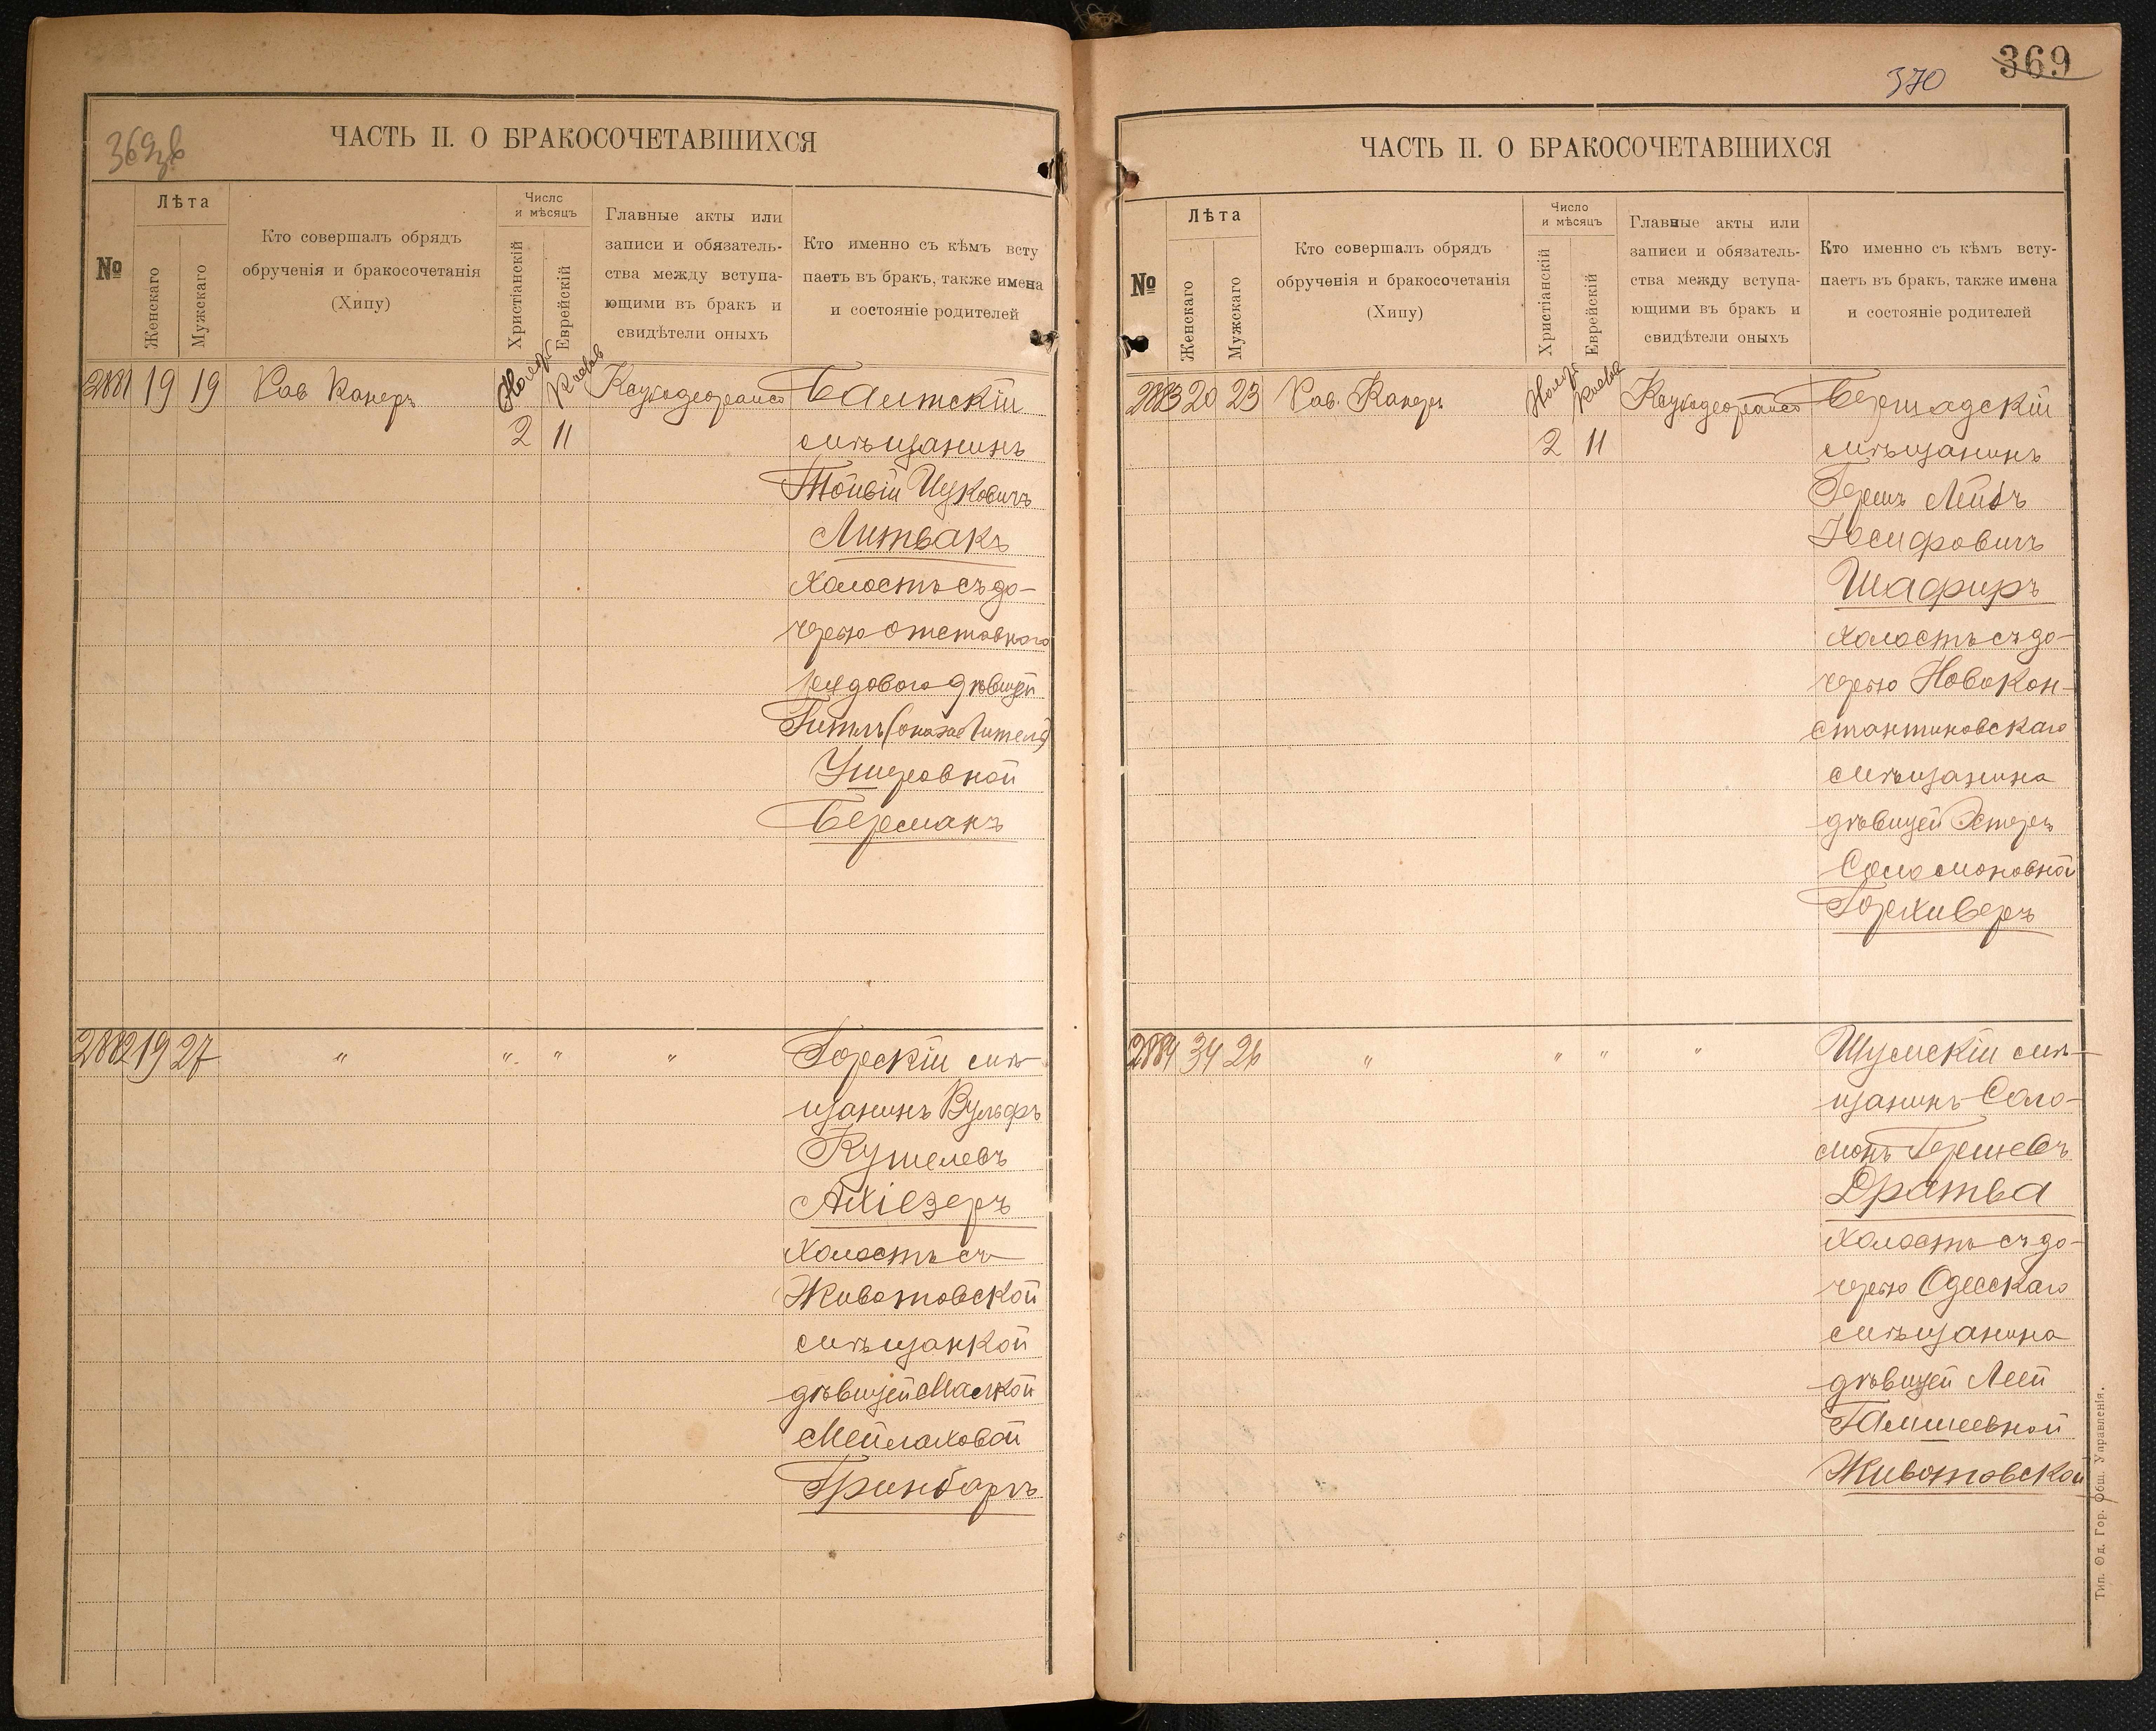 369зв
ЧАСТЬ II. О БРАКОСОЧЕТАВШИХСЯ
№
Лѣта
Женскаго
Мужскаго
Кто совершалъ обрядъ
обрученія и бракосочетанія
(Хипу)
Число
и мѣсяцъ
Христіанскій
Еврейскій
Главные акты или
записи и обязатель-
ства между вступа-
ющими въ бракъ и
свидѣтели оныхъ
Кто именно съ кѣмъ всту
паетъ въ бракъ, также имена
и состояніе родителей
2881 19 19 Рав Канеръ
2 11
Балтскій
мѣщанинъ
Тойвій Ицковичъ
Литвакъ
холостъ съ до-
черью отставного
рядового дѣвицей
Гитль (она же Гитель)
Ушеровной
Берманъ
2882 19 27 " " " "
Горскій мѣ-
щанинъ Вульфъ
Кушелевъ
Ахіезеръ
холостъ съ
Животовской
мѣщанкой
дѣвицей Малкой
Мейлаховой
Гринбаргъ
369
370
ЧАСТЬ II. О БРАКОСОЧЕТАВШИХСЯ
№
Лѣта
Женскаго
Мужскаго
Кто совершалъ обрядъ
обрученія и бракосочетанія
(Хипу)
Число
и мѣсяцъ
Христіанскій
Еврейскій
Главные акты или
записи и обязатель-
ства между вступа-
ющими въ бракъ и
свидѣтели оныхъ
Кто именно съ кѣмъ всту-
паетъ въ бракъ, также имена
и состояніе родителей
2883 20 23 Рав. Канеръ
2 11
Бершадскій
мѣщанинъ
Гершъ Лейбъ
Юсифовичъ
Шафиръ
холостъ съ до-
черью Новокон-
стантиновскаго
мѣщанина
дѣвицей Эстеръ
Соломоновной
Горхиверъ
2884 34 26 " " " "
Шумскій мѣ-
щанинъ Соло-
монъ Гершевъ
Дратва
холостъ съ до-
черью Одесскаго
мѣщанина
дѣвицей Леей
Гамшеевной
Животовской
Тип. Од. Гор. Общ. Управленія.